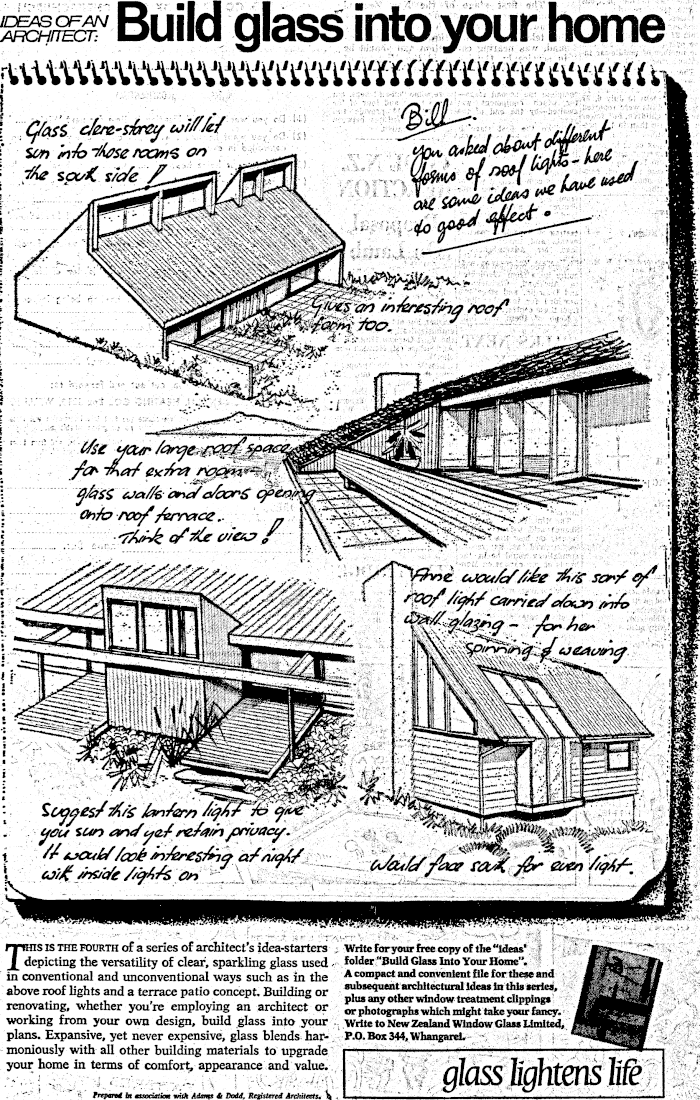 IDEAS OF AN
ARCHITECT:
Build glass into your home
Glass clere-storey will let
sun into those rooms on
the south side!
Bill.
you asked about different
forms of roof lights - here
are some ideas we have used
to good effect.
Gives an interesting roof
form too.
Use your large roof space
for that extra room -
glass walls and doors opening
onto roof terrace.
Think of the view!
Anne would like this sort of
roof light carried down into
wall glazing - for her
spinning & weaving
Suggest this lantern light to give
you sun and yet retain privacy.
It would look interesting at night
with inside lights on
Would face south for even light.
THIS IS THE FOURTH of a series of architect's idea-starters
depicting the versatility of clear, sparkling glass used
in conventional and unconventional ways such as in the
above roof lights and a terrace patio concept. Building or
renovating, whether you're employing an architect or
working from your own design, build glass into your
plans. Expansive, yet never expensive, glass blends har-
moniously with all other building materials to upgrade
your home in terms of comfort, appearance and value.
Prepared in association with Adams & Dodd, Registered Architects.
Write for your free copy of the "ideas'
folder "Build Glass Into Your Home".
A compact and convenient file for these and
subsequent architectural ideas in this series,
plus any other window treatment clippings
or photographs which might take your fancy.
Write to New Zealand Window Glass Limited,
P.O. Box 344, Whangarei.
glass lightens life